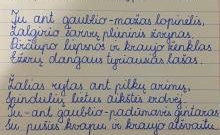 Tu ant gaublio – mažas lopinėlis,
Žalgirio šarvų plieninis žvynas.
Perkūno liepsnos ir kraujo ženklas
Ežerų dangaus tyriausias lašas.

Žalias rytas ant pilkų arimų,
Spindulių lietus aikštės erdvėj.
Tu – ant gaublio – padūmavęs gintaras
Su pušies kvapu ir kraujo atšvaitu